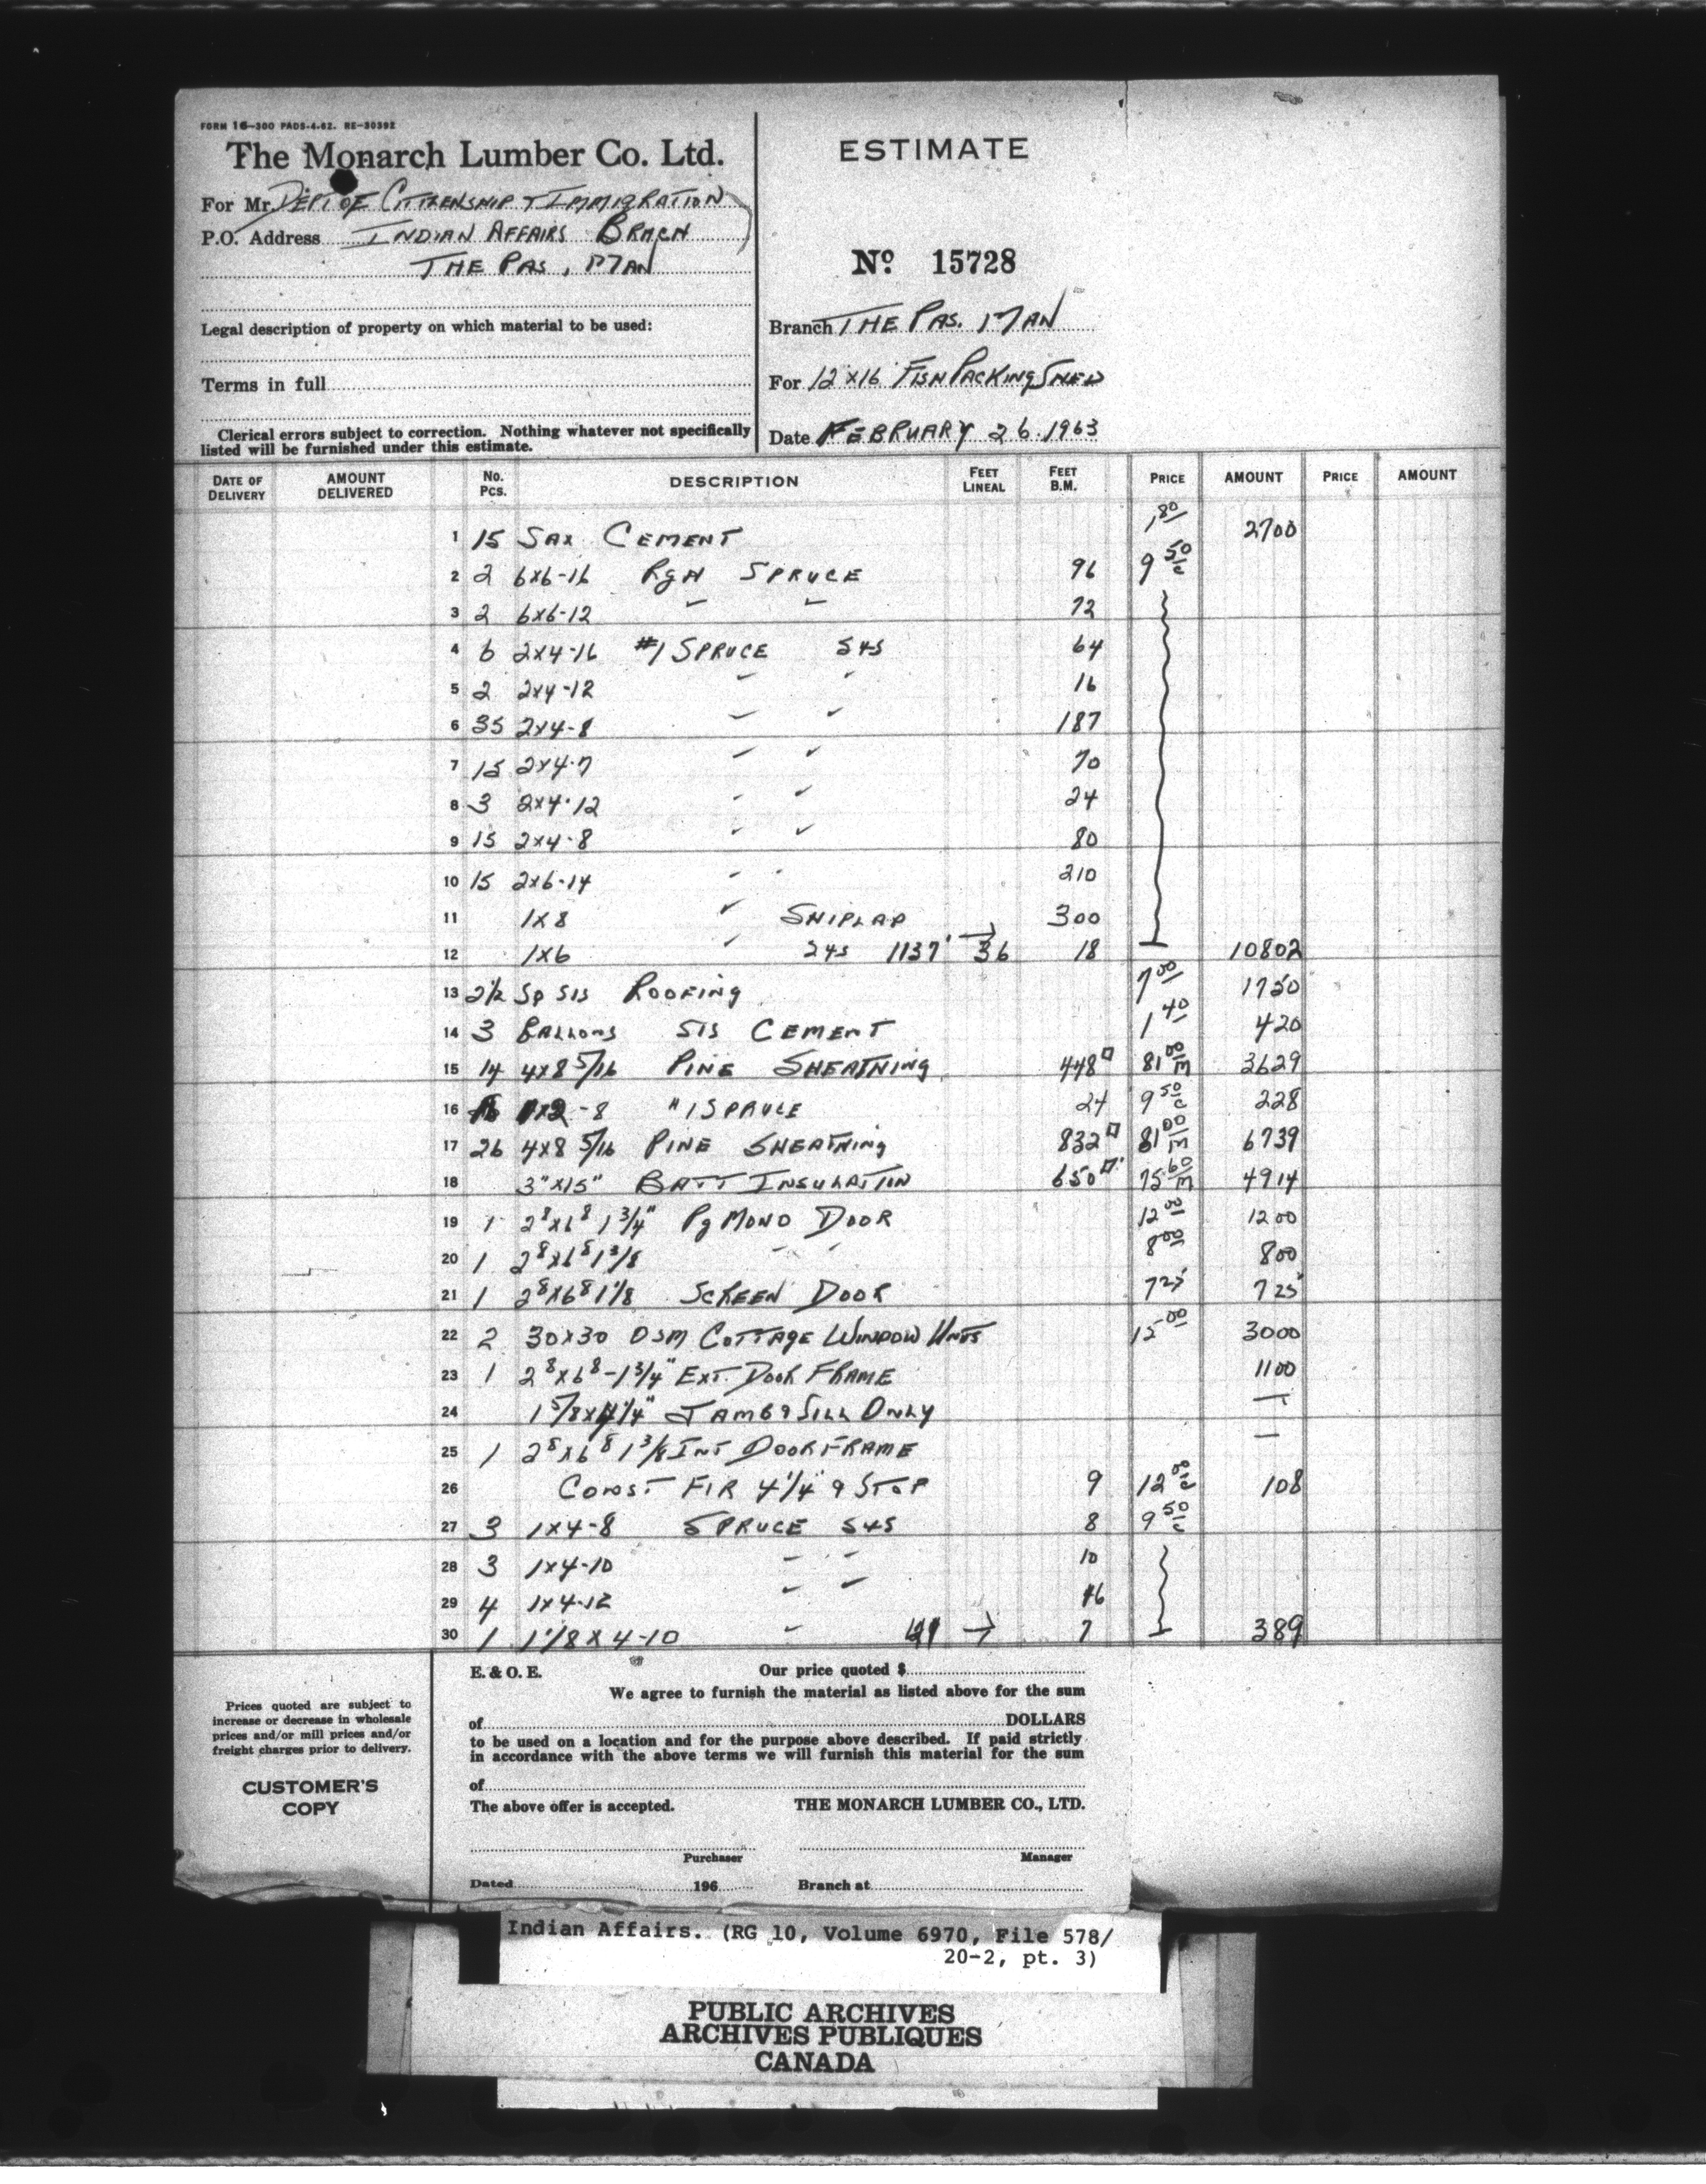 FORM 16-300 PADS-4-62. RE-30392
The Monarch Lumber Co. Ltd.
For Mr. DEPT OF CITIZENSHIP + IMMIGRATION
P.O. Address INDIAN AFFAIRS BRACH
THE PAS, MAN
Legal description of property on which material to be used:
Terms in full
Clerical errors subject to correction. Nothing whatever not specifically
listed will be furnished under this estimate.
ESTIMATE
No. 15728
Branch THE PAS. MAN
For 12x16 FISH PACKING SHED
Date FEBRUARY 26 1963
DATE OF DELIVERY AMOUNT DELIVERED No. Pcs. DESCRIPTION FEET LINEAL FEET B.M. PRICE AMOUNT PRICE AMOUNT
1 15 SAX CEMENT 1.80 2700
2 2 6x6-16 RGH SPRUCE 96 9 50/c
3 2 6x6-12 " " 72
4 6 2x4-16 #1 SPRUCE S4S 64
5 2 2x4-12 " " 16
6 35 2x4-8 " " 187
7 15 2x4-7 " " 70
8 3 2x4-12 " " 24
9 15 2x4-8 " " 80
10 15 2x6-14 " " 210
11 1x8 " SHIPLAP 300
12 1x6 " 1137' → 36 18 10802
13 2½ SIS ROOFING 7 00 1750
14 3 GALLONS SIS CEMENT 1 40 420
15 14 4x8 5/16 PINE SHEATHING 448□ 81 00/M 3629
16 1x2-8 #1 SPRUCE 24 9 50/c 228
17 26 4x8 5/16 PINE SHEATHING 832□ 81 00/M 6739
18 3"x15" BATT INSULATION 650□' 75 60/M 4914
19 1 2⁸x6⁸ 1¾" MONO DOOR 12 00 1200
20 1 2⁸x6⁸ 1⅜ " " 8 00 800
21 1 2⁸x6⁸ 1⅛ SCREEN DOOR 7 25 725
22 2 30x30 DSM COTTAGE WINDOW UNITS 15 00 3000
23 1 2⁸x6⁸-1¾" EXT. DOOR FRAME 1100
24 1 5/8x4¼" JAMB & SILL ONLY —
25 1 2⁸x6⁸ 1⅜ INT DOOR FRAME —
26 CONST FIR 4¼" & STOP 9 12 00/c 108
27 3 1x4-8 SPRUCE S4S 8 9 50/c
28 3 1x4-10 " " 10
29 4 1x4-12 " " 16
30 1 1⅛x4-10 " → 7 389
E. & O. E. Our price quoted $
We agree to furnish the material as listed above for the sum
of DOLLARS
to be used on a location and for the purpose above described. If paid strictly
in accordance with the above terms we will furnish this material for the sum
of
The above offer is accepted. THE MONARCH LUMBER CO., LTD.
Purchaser Manager
Dated 196 Branch at
Prices quoted are subject to
increase or decrease in wholesale
prices and/or mill prices and/or
freight charges prior to delivery.
CUSTOMER'S
COPY
Indian Affairs. (RG 10, Volume 6970, File 578/
20-2, pt. 3)
PUBLIC ARCHIVES
ARCHIVES PUBLIQUES
CANADA